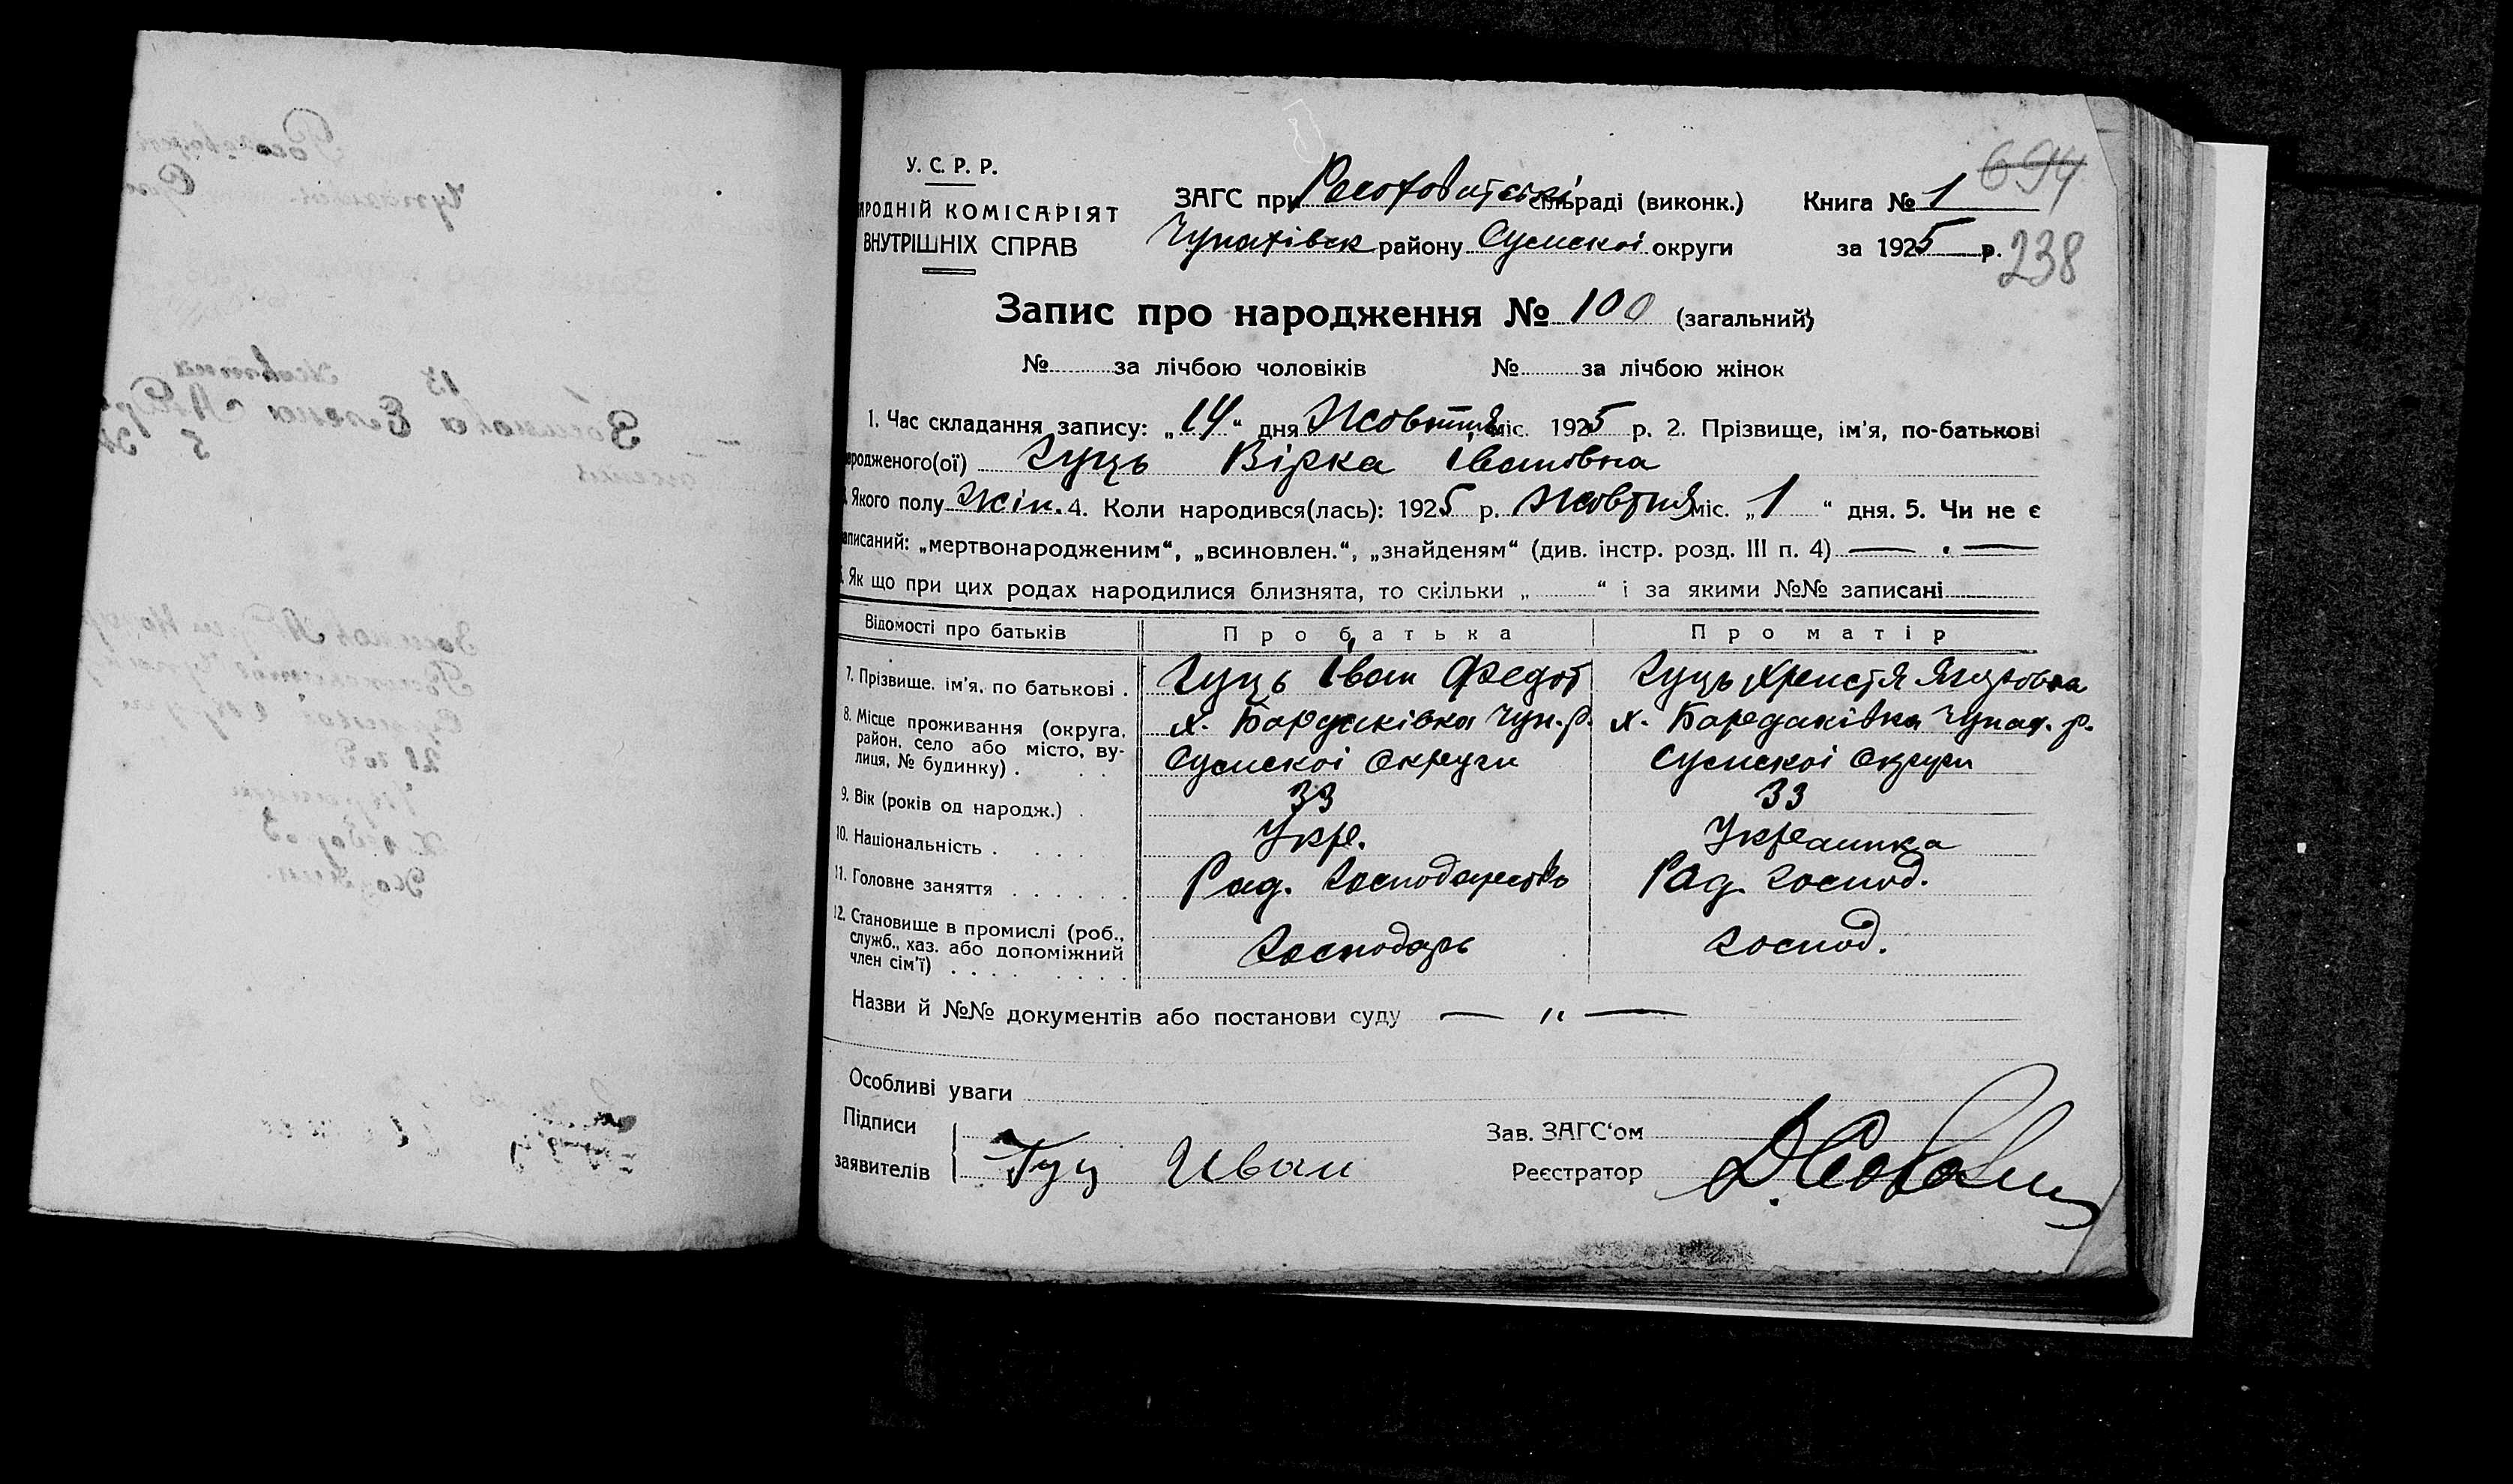 694
У. С. Р. Р.
АРОДНІЙ КОМІСАРІЯТ
ВНУТРІШНІХ СПРАВ
ЗАГС при сільраді (виконк.) Книга № 1
Чупахівськ району Сумської округи за 1925 р.
238
Запис про народження № 100 (загальний)
№ за лічбою чоловіків № за лічбою жінок
1. Час складання запису: „14“ дня Жовтня міс. 1925 р. 2. Прізвище, ім'я, по-батькові
ародженого(ої) Гуць Вірка Івановна
3. Якого полу жін. 4. Коли народився(лась): 1925 р. Жовтня міс. „1“ дня. 5. Чи не є
записаний: „мертвонародженим“, „всиновлен.“, „знайденям“ (див. інстр. розд. III п. 4) — . —
6. Як що при цих родах народилися близнята, то скільки „ “ і за якими №№ записані
Відомості про батьків Про батька Про матір
7. Прізвище. ім'я, по батькові . Гуць Іван Федот Гуць Христя
8. Місце проживання (округа, район, село або місто, вулиця, № будинку) . х. Бардаківка Чуп. р. Сумскої Округи х. Бардаківка Чупах. р. Сумскої Округи
9. Вік (років од народж.) . 33 33
10. Національність . Укр. Украинка
11. Головне заняття . Рад. Господарств Рад. господ.
12. Становище в промислі (роб., служб., хаз. або допоміжний член сім'ї) . Господарь господ.
Назви й №№ документів або постанови суду — „ —
Особливі уваги
Підписи
заявителів Гуц Иван
Зав. ЗАГС'ом
Реєстратор